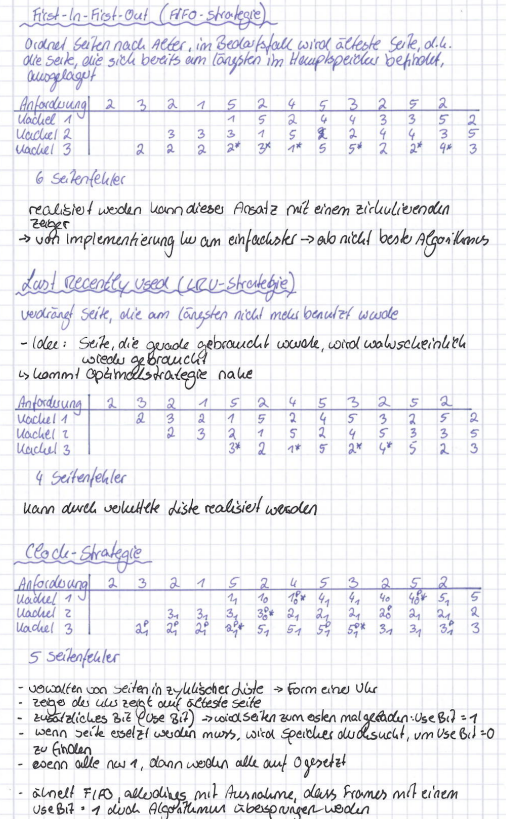 First-In-First-Out (FIFO-Strategie)
Ordnet Seiten nach Alter, im Bedarfsfall wird älteste Seite, d.h.
die Seite, die sich bereits am längsten im Hauptspeicher befindet,
ausgelagert
Anforderung 2 3 2 1 5 2 4 5 3 2 5 2
Kachel 1 1 5 2 4 4 3 3 5 2
Kachel 2 3 3 3 1 5 2 2 4 4 3 5
Kachel 3 2 2 2 2* 3* 1* 5 5* 2 2* 4* 3
6 Seitenfehler
realisiert werden kann dieser Ansatz mit einem zirkulierenden
Zeiger
→ von Implementierung her am einfachsten → ab nicht beste Algorithmus
Last Recently Used (LRU-Strategie)
verdrängt Seite, die am längsten nicht mehr benutzt wurde
- Idee: Seite, die gerade gebraucht wurde, wird wahrscheinlich
wieder gebraucht
↳ kommt Optimalstrategie nahe
Anforderung 2 3 2 1 5 2 4 5 3 2 5 2
Kachel 1 2 3 2 1 5 2 4 5 3 2 5 2
Kachel 2 2 3 2 1 5 2 4 5 3 3 5
Kachel 3 3* 2 1* 5 2* 4* 5 2 3
4 Seitenfehler
kann durch verkettete Liste realisiert werden
Clock-Strategie
Anforderung 2 3 2 1 5 2 4 5 3 2 5 2
Kachel 1 1₁ 1₀ 4₁ 4₁ 4₀ 5₁ 5
Kachel 2 3₁ 3₁ 3₁ 2₁ 2₁ 2₁ 2₁ 2₁ 2
Kachel 3 5₁ 5₁ 3₁ 3₁ 3
5 Seitenfehler
- verwalten von Seiten in zyklischer Liste → Form einer Uhr
- Zeiger der Uhr zeigt auf älteste Seite
- zusätzliches Bit (Use Bit) → wird Seiten zum ersten mal geladen: Use Bit = 1
- wenn Seite ersetzt werden muss, wird Speicher durchsucht, um Use Bit = 0
zu finden
- wenn alle nur 1, dann werden alle auf 0 gesetzt
- ähnelt FIFO, allerdings mit Ausnahme, dass Frames mit einem
Use Bit = 1 durch Algorithmus übersprungen werden